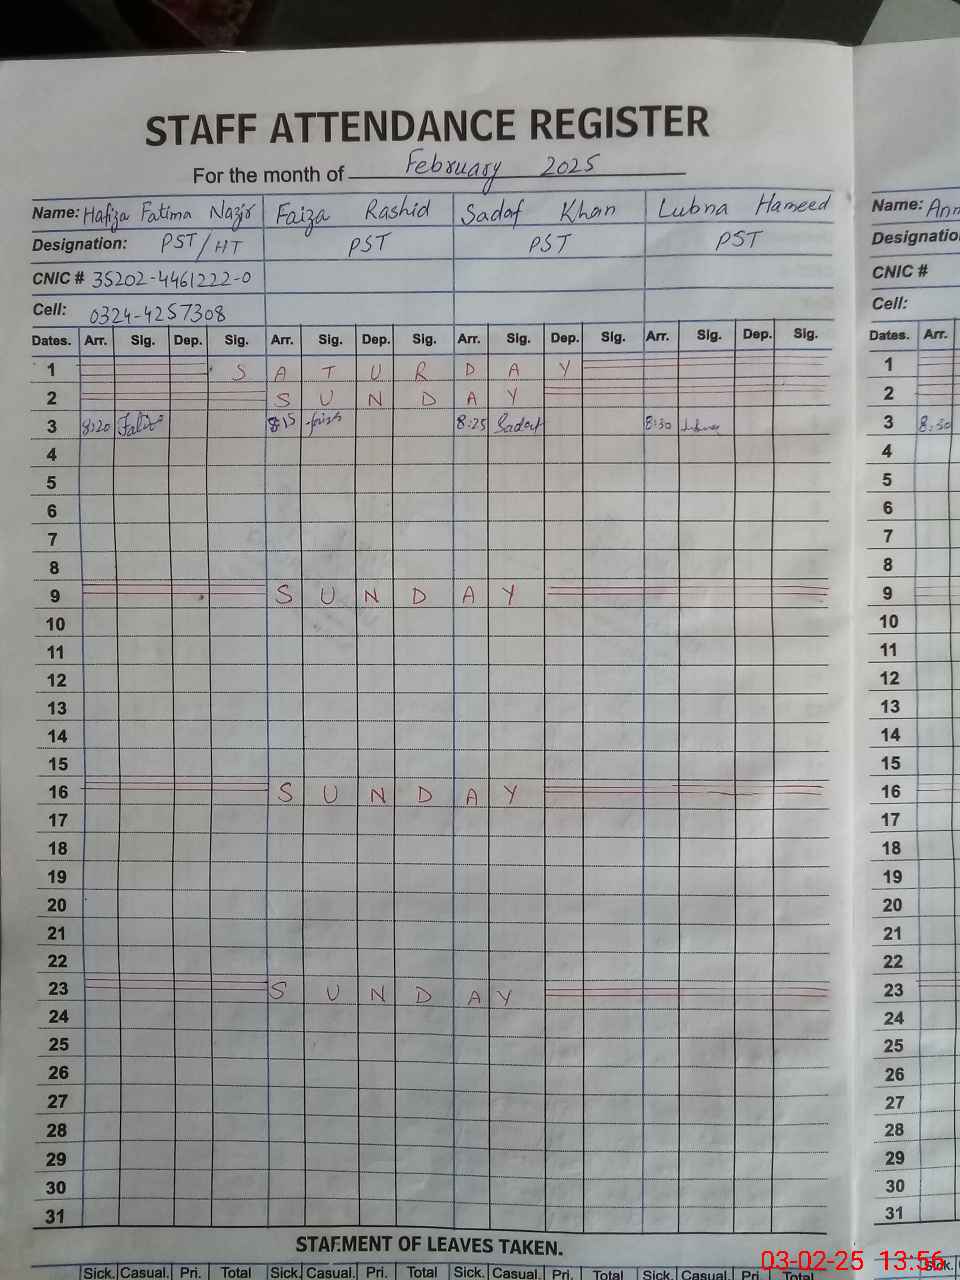 STAFF ATTENDANCE REGISTER
For the month of February 2025
Name: Hafiza Fatima Nazir Faiza Rashid Sadaf Khan Lubna Hameed
Designation: PST/HT PST PST PST
CNIC # 35202-4461222-0
Cell: 0324-4257308
Dates. Arr. Sig. Dep. Sig. Arr. Sig. Dep. Sig. Arr. Sig. Dep. Sig. Arr. Sig. Dep. Sig.
1 S A T U R D A Y
2 S U N D A Y
3 8:20 8:15 8:25 Sadaf 8:30
4
5
6
7
8
9 S U N D A Y
10
11
12
13
14
15
16 S U N D A Y
17
18
19
20
21
22
23 S U N D A Y
24
25
26
27
28
29
30
31
STAFMENT OF LEAVES TAKEN.
Sick. Casual. Pri. Total Sick. Casual. Pri. Total Sick. Casual. Pri. Total Sick. Casual. Pri. Total
Name:
Designatio
CNIC #
Cell:
Dates. Arr.
1
2
3 8:30
4
5
6
7
8
9
10
11
12
13
14
15
16
17
18
19
20
21
22
23
24
25
26
27
28
29
30
31
Sick.
03-02-25 13:56